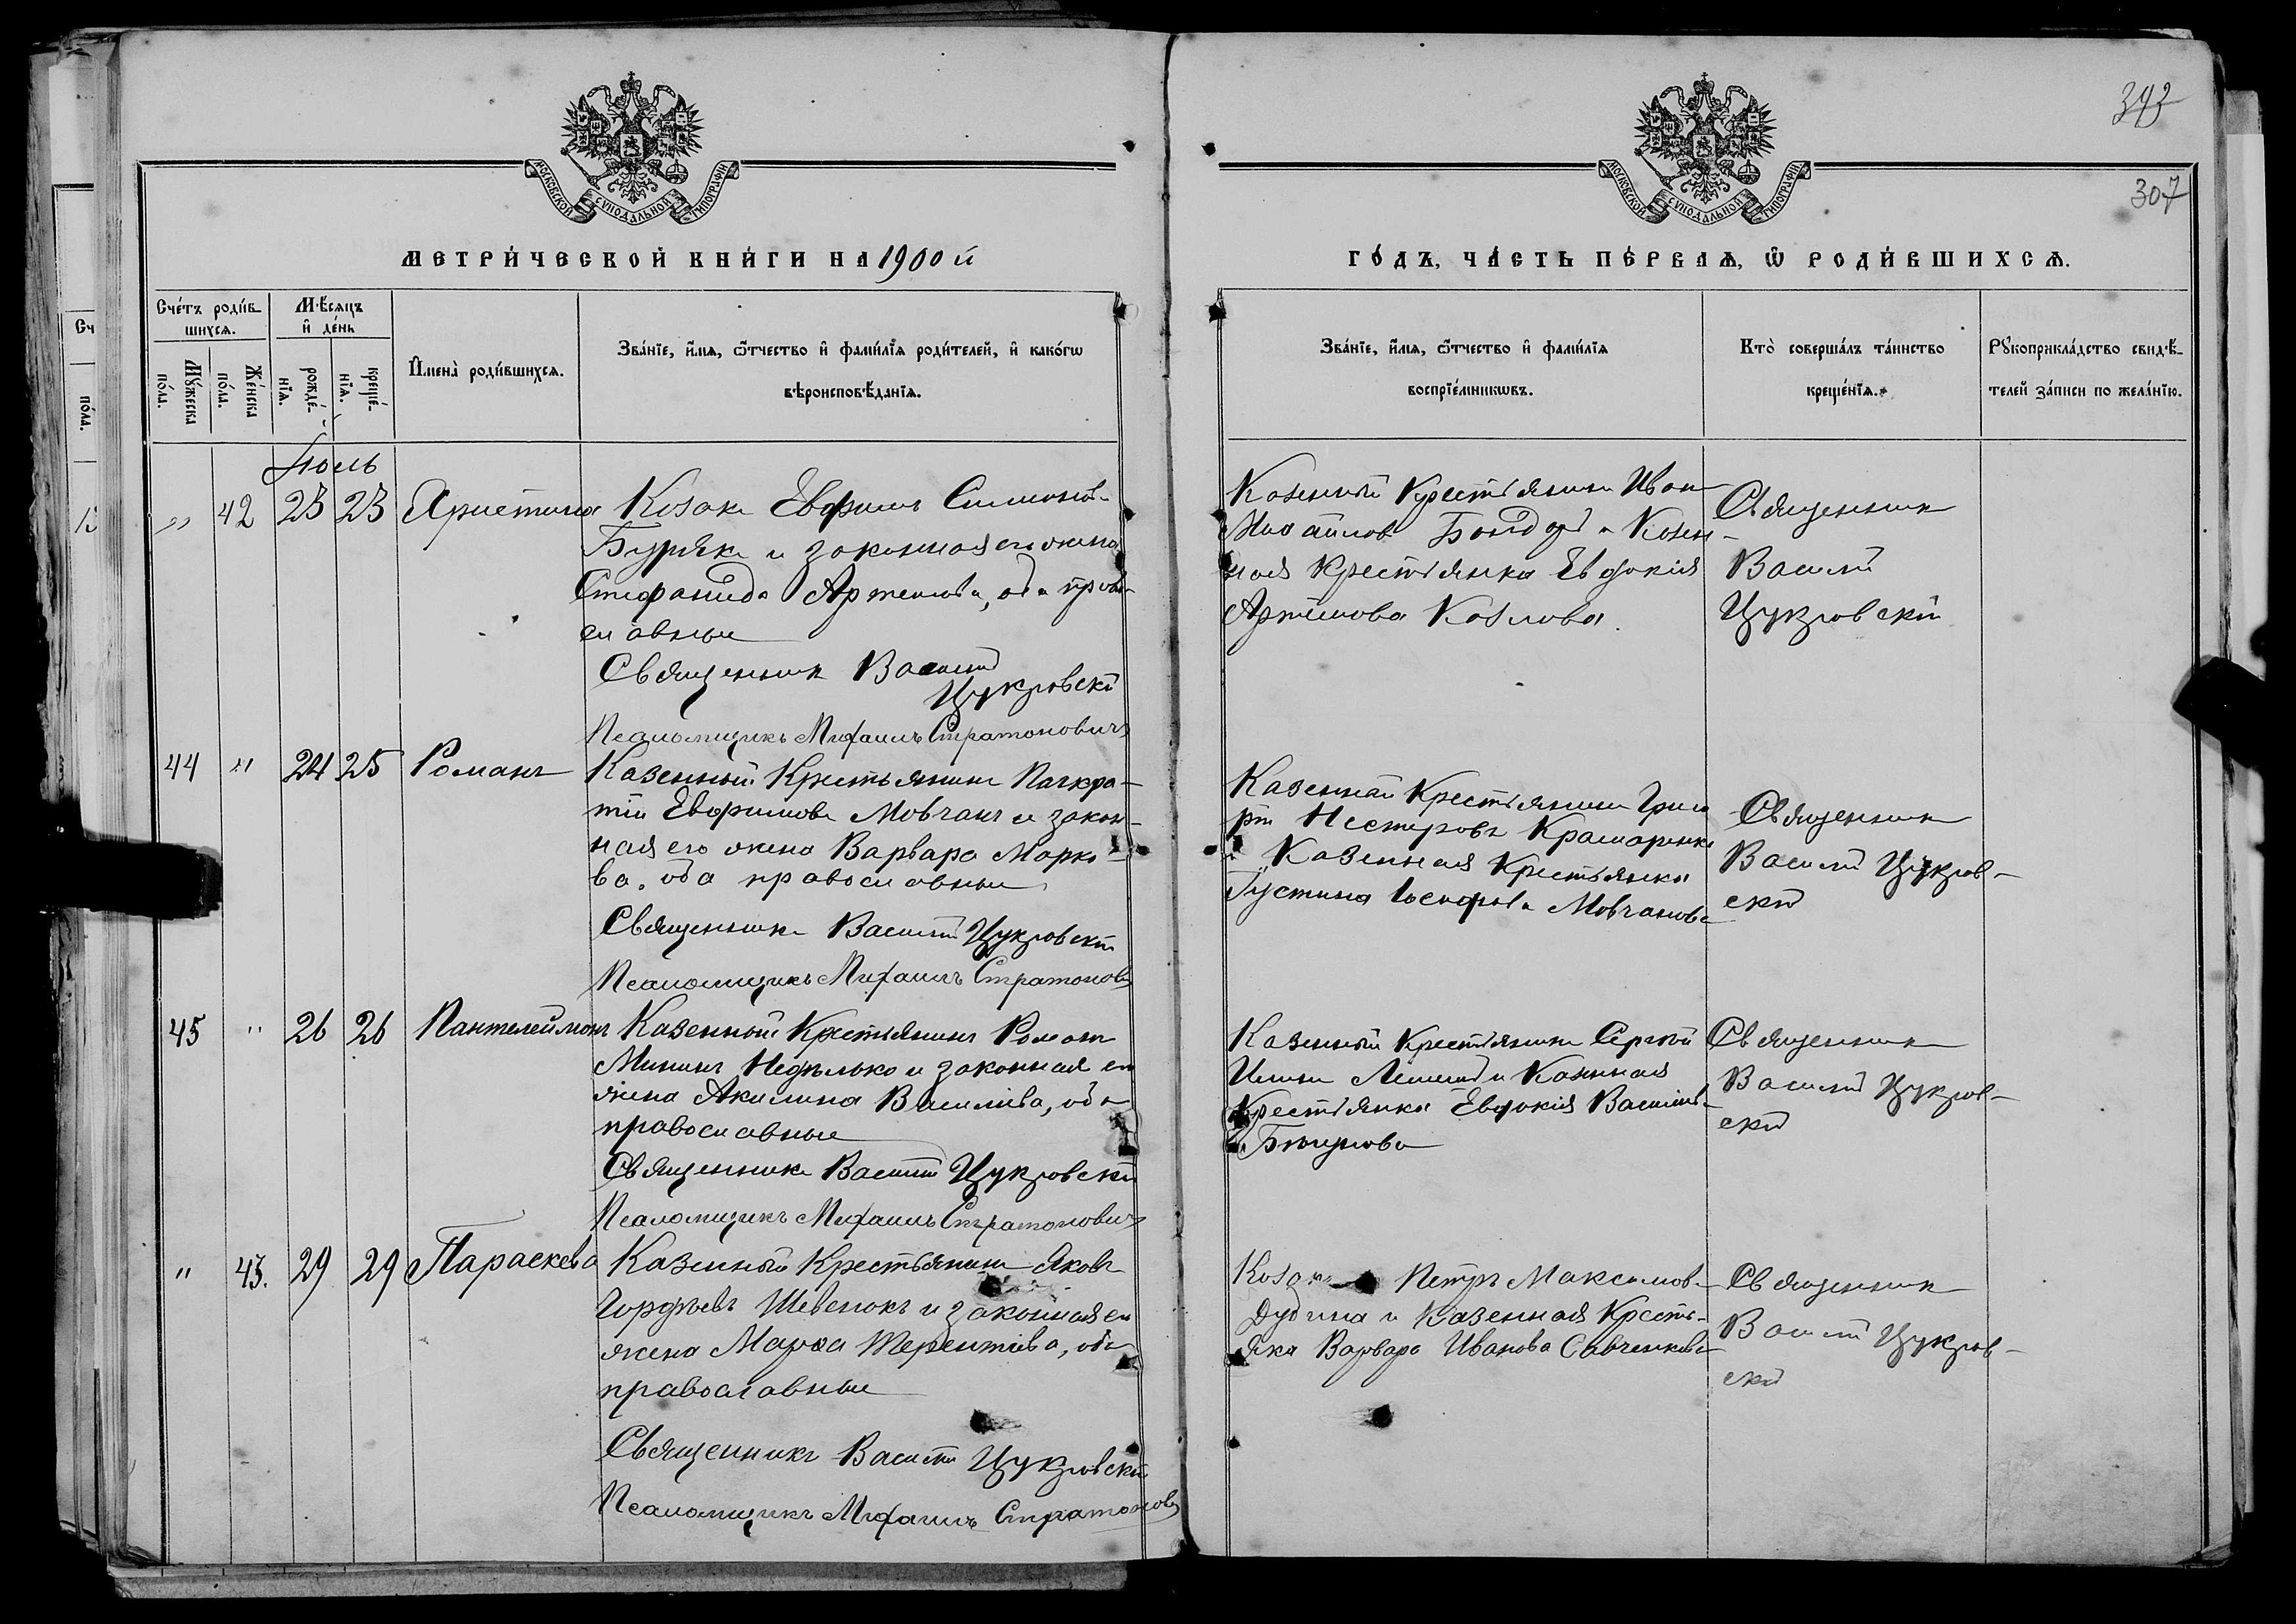 343
307
МОСКОВСКОЙ СѴНОДАЛЬНОЙ ТИПОГРАФІИ
МОСКОВСКОЙ СѴНОДАЛЬНОЙ ТИПОГРАФІИ
МЕТРИ́ЧЕСКОЙ КНИ́ГИ НА 1900 й
ГО́ДЪ, ЧА́СТЬ ПЕ́РВАѦ, Ѿ РОДИ́ВШИХСѦ.
Сче́тъ роди́в-
шихсѧ.
Мꙋ́жеска
по́ла.
Же́нска
по́ла.
Мѣ́сѧцъ
и҆ де́нь
рожде́-
нїѧ.
креще́-
нїѧ.
И҆мена̀ роди́вшихсѧ.
Зва́нїе, и҆́мѧ, ѻ҆́тчество и҆ фамѝлїѧ роди́телей, и҆ како́гѡ
вѣроисповѣ́данїѧ.
Зва́нїе, и҆́мѧ, ѻ҆́тчество и҆ фамѝлїѧ
воспрїе́мникѡвъ.
Кто̀ соверша́лъ та́инство
креще́нїѧ.
Рꙋкоприкла́дство свидѣ́-
телей за́писи по жела́нїю.
Іюль
" 42 23 23 Христина
Козакъ Евфимъ Симонов
Бурякъ и законная его жена
Стефанида Артемова, оба право-
славные
Священник Василій
Цукровскій
Псаломщикъ Михаилъ Стратоновичъ
Казенный Крестьянин Иван
Михайлов и Казен-
ная Крестьянка Евдокія
Артемова Козлова.
Священник
Василій
Цукровскій
44 " 24 25 Романъ
Казенный Крестьянинъ Панкра-
тій Евфимовъ Мовчанъ и закон-
ная его жена Варвара Марко-
ва, оба православные
Священникъ Василій Цукровскій
Псаломщикъ Михаилъ Стратонов
Казенный Крестьянин Григо
рій Нестеровъ Крамаренко
и Казенная Крестьянка
Іустина Іосифова Мовчанова
Священник
Василій Цукров-
скій
45 " 26 26 Пантелеймонъ
Казенный Крестьянинъ Роман
Мининъ Недѣлько и законная его
жена Акилина Василіева, оба
православные
Священникъ Василій Цукровскій
Псаломщикъ Михаилъ Стратонович
Казенный Крестьянин Сергій
и Казенная
Крестьянка Евдокія Василіев
Священник
Василій Цукров-
скій
" 43. 29 29 Параскева
Казенный Крестьянин Яковъ
Гордѣевъ Шевенокъ и законная его
жена Марфа Терентіева, оба
православные
Священникъ Василій Цукровскій
Псаломщикъ Михаилъ Стратонов
Козакъ Петръ Максимов
Дудина и Казенная Кресть-
янка Варвара Иванова Савченкова
Священник
Василій Цукров-
скій
Сч
пола.